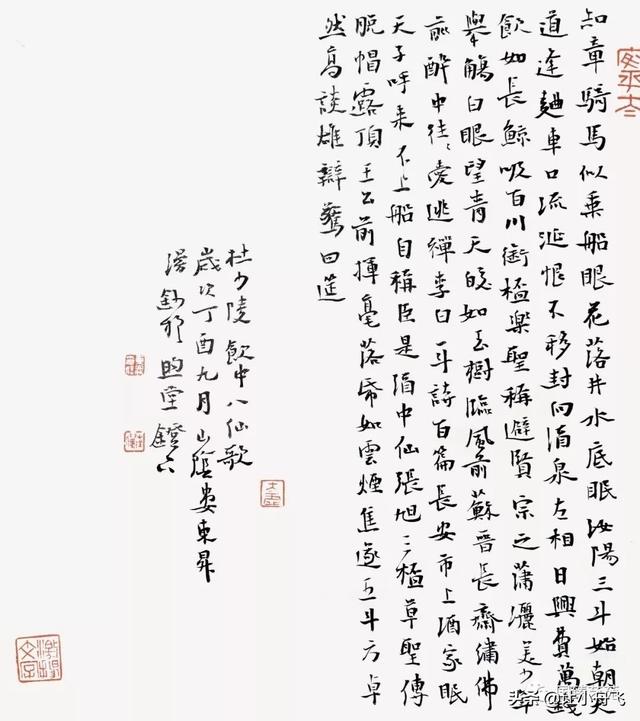 知章騎馬似乘船眼花落井水底眠汝陽三斗始朝天
道逢麯車口流涎恨不移封向酒泉左相日興費萬錢
飲如長鯨吸百川銜桮樂聖稱避賢宗之瀟灑美少年
舉觴白眼望青天皎如玉樹臨風前蘇晉長齋繡佛
前醉中往〻愛逃禪李白一斗詩百篇長安市上酒家眠
天子呼來不上船自稱臣是酒中仙張旭三桮草聖傳
脫帽露頂王公前揮毫落紙如雲煙焦遂五斗方卓
然高談雄辯驚四筵
杜少陵飲中八仙歌
歲次丁酉九月山陰婁東昇
煦堂鐙下
头条